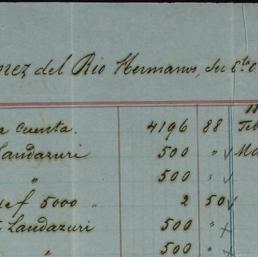 nez del Rio Hermanos, su Cta C
11
a cuenta. 4196 88 Feb
Landazuri 500 " ✓ Ma
" 500 " ✓
de f 5000 2 50 ✓
Landazuri 500 "
" 500 "